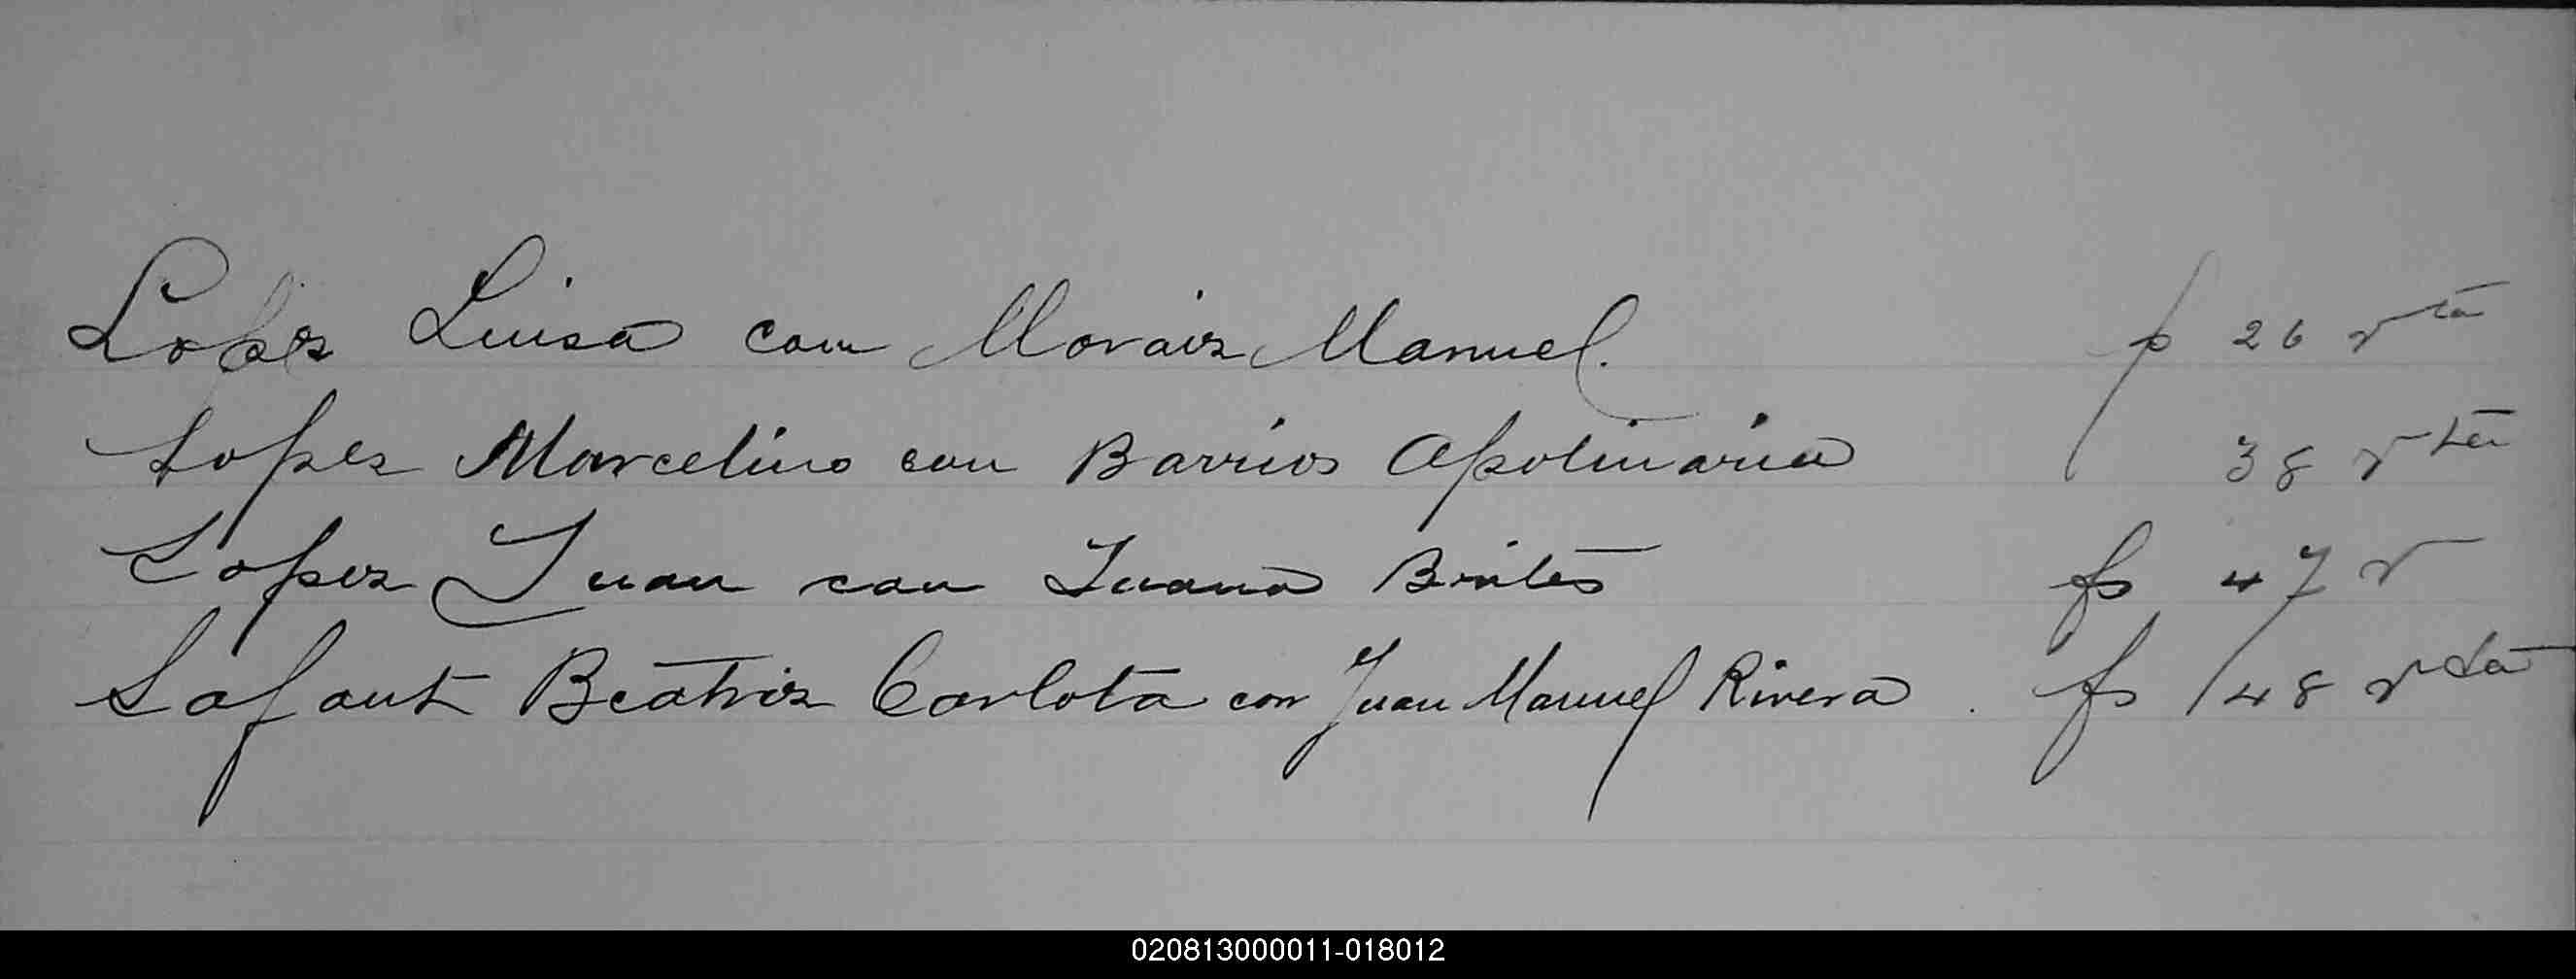 Lopez Luisa con Moraiz Manuel. f 26 vta
Lopez Marcelino con Barrios Apolinaria 38 vta
Lopez Juan con Juana Brites fs 47 v
Lafont Beatriz Carlota con Juan Manuel Rivera. fs 48 vta
020813000011-018012